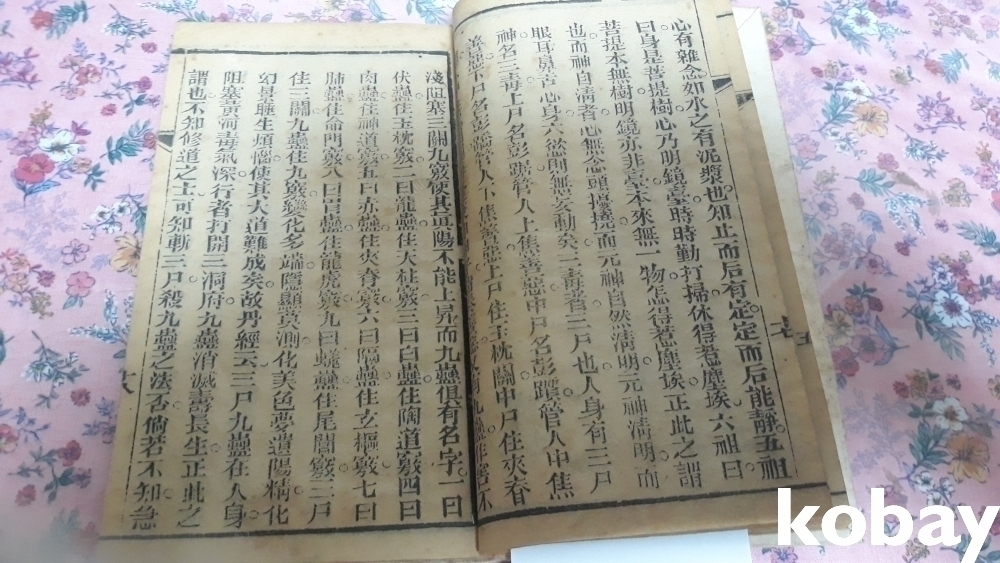 心有雜念如水之有泥漿也知止而后有定定而后能靜五祖
曰身是菩提樹心乃明鏡臺時時勤打掃休得惹塵埃六祖曰
菩提本無樹明鏡亦非臺本來無一物怎得惹塵埃正此之謂
也而神自清者心無念頭擾擾而元神自然清明元神清明而
眼耳鼻舌心身六慾前無妄動矣三毒者三尸也人身有三尸
神名三毒上尸名彭踞管人上焦善惡中尸名彭躓管人中焦
善惡下尸名彭蹻管人下焦善惡上尸住玉枕關中尸住夾脊
九蠱
淺阻塞三關九竅使其真陽不能上昇而九蠱俱有名字一曰
伏蠱住玉枕竅二曰龍蠱住天柱竅三曰白蠱住陶道竅四曰
肉蠱住神道竅五曰赤蠱住夾脊竅六曰隔蠱住玄樞竅七曰
肺蠱住命門竅八曰胃蠱住龍虎竅九曰蜣蠱住尾閭竅三尸
住三關九蠱住九竅變化多端隱顯莫測化美色夢遺陽精化
幻景睡生煩惱使其大道難成矣故丹經云三尸九蠱在人身
阻塞黃河毒氣深行者打開三洞府九蠱消滅壽長生正此之
謂也不知修道之士可知斬三尸殺九蠱之法否倘若不知急
kobay